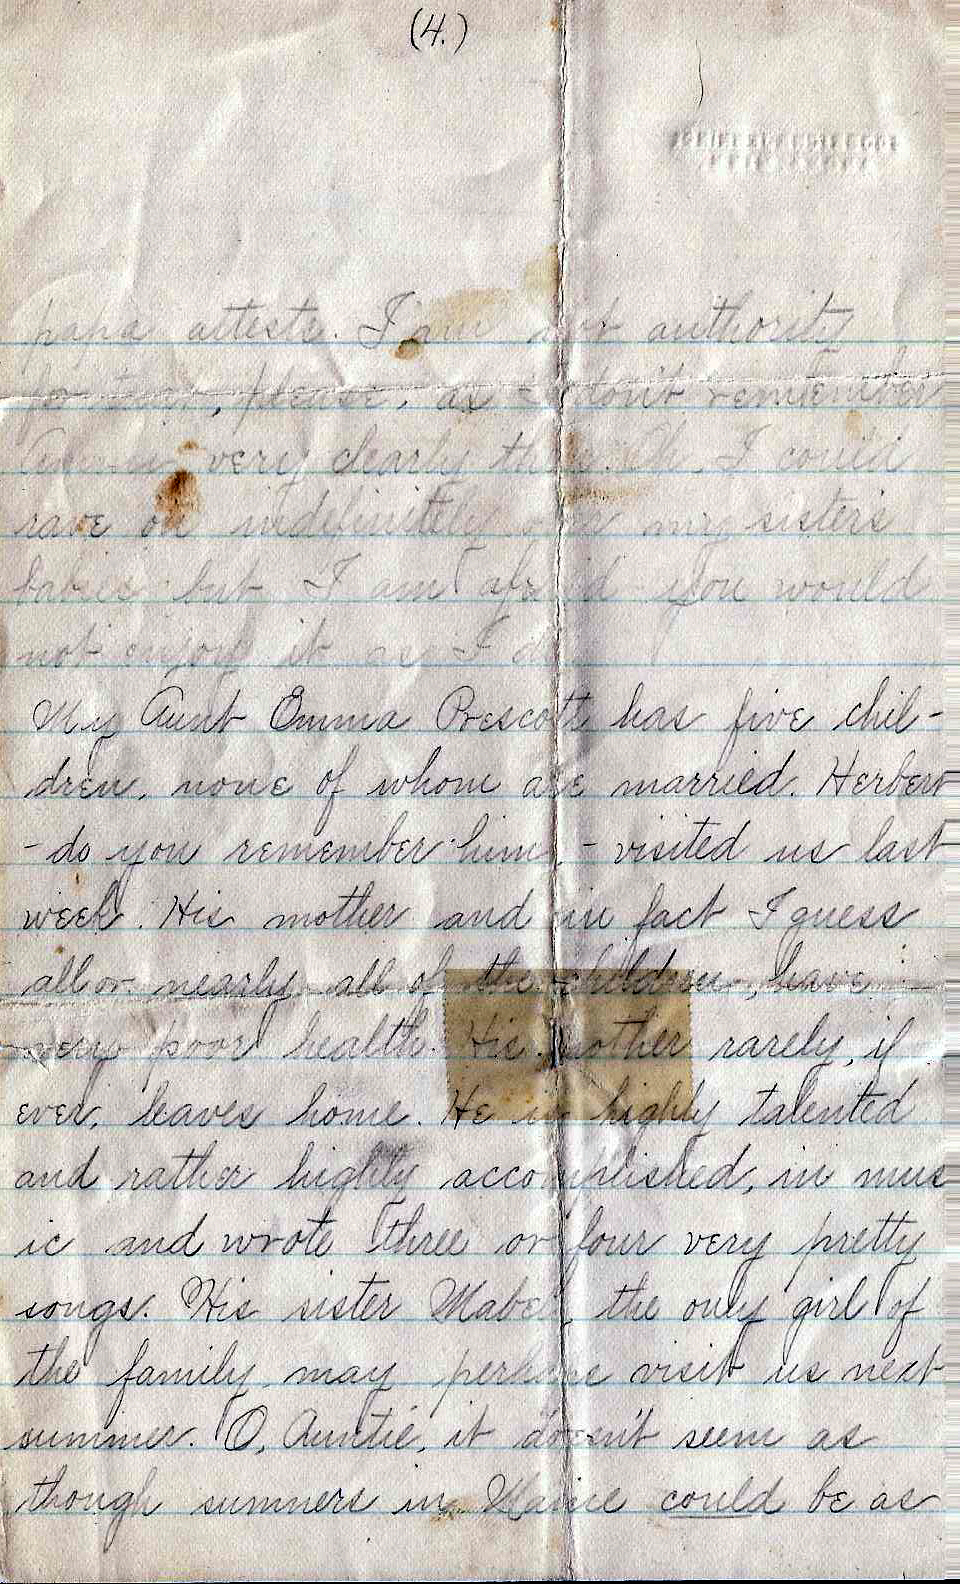 (4.)
papa attests. I am not authority
for that, please, as I don't remember
very clearly then. Oh, I could
rave on indefinitely over my sister's
babies but I am afraid you would
not enjoy it as I do.
My Aunt Emma Prescott has five chil-
dren, none of whom are married. Herbert
- do you remember him, - visited us last
week. His mother and in fact I guess
all or nearly all of the children, have
very poor health. His mother rarely, if
ever, leaves home. He is highly talented
and rather highly accomplished, in mus
ic and wrote three or four very pretty
songs. His sister Mabel, the only girl of
the family, may perhaps visit us next
summer. O, Auntie, it doesn't seem as
though summers in Maine could be as